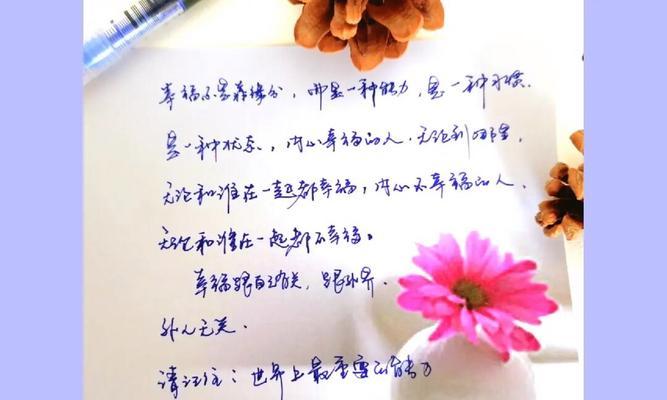 幸福不是靠缘分，而是一种能力，是一种习惯．
是一种状态．，内心幸福的人．无论到哪里，
无论和谁在一起都幸福，内心不幸福的人．
无论和谁在一起都不幸福。
幸福跟自己有关，跟外界．
外人无关．
请记住：世界上最重要的能力